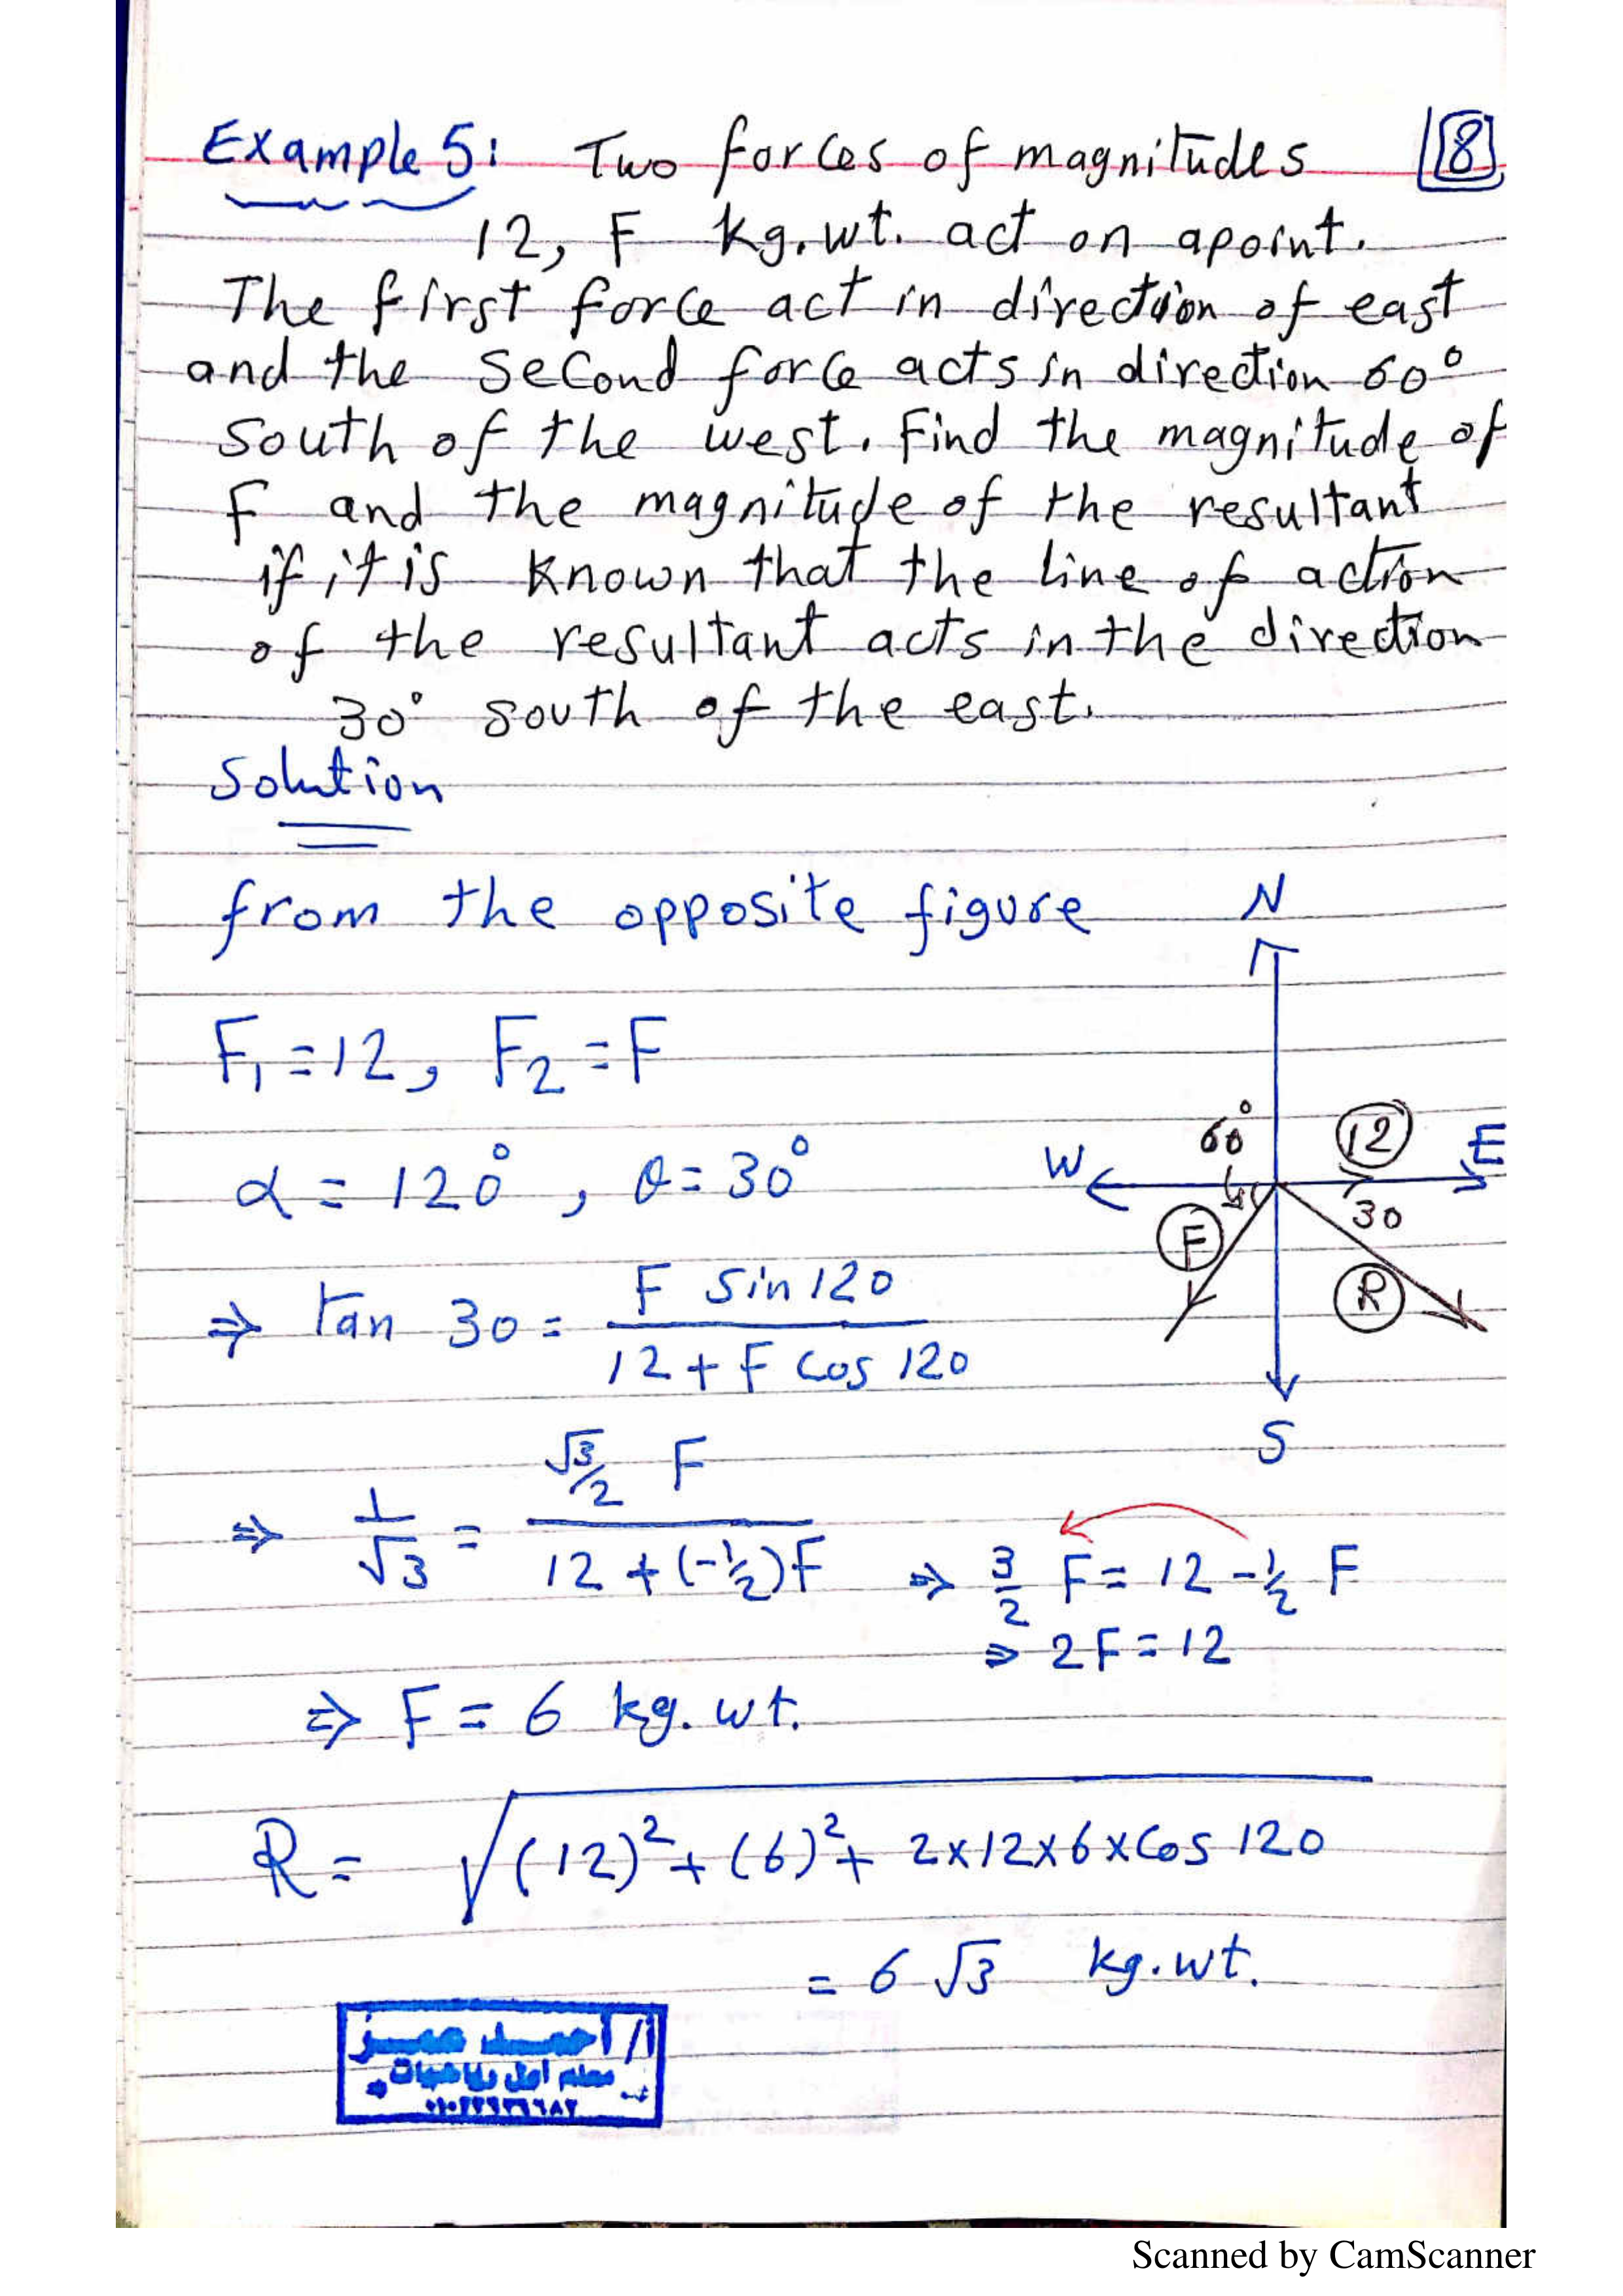 Example 5: Two forces of magnitudes
8
12, F kg.wt. act on apoint.
The first force act in direction of east
and the second force acts in direction 60°
south of the west. Find the magnitude of
F and the magnitude of the resultant
if it is known that the line of action
of the resultant acts in the direction
30° south of the east.
Solution
from the opposite figure
N
F₁ = 12, F₂ = F
60°
12
E
W
α = 120°, θ = 30°
30
F
R
S
⇒ tan 30 = F sin 120 / 12 + F cos 120
⇒ 1/√3 = √3/2 F / 12 + (-1/2)F ⇒ 3/2 F = 12 - 1/2 F
⇒ 2F = 12
⇒ F = 6 kg.wt.
R = √(12)² + (6)² + 2×12×6×Cos 120
= 6 √3 kg.wt.
أ/ أحمد عمیز
معلم اول رياضيات
Scanned by CamScanner